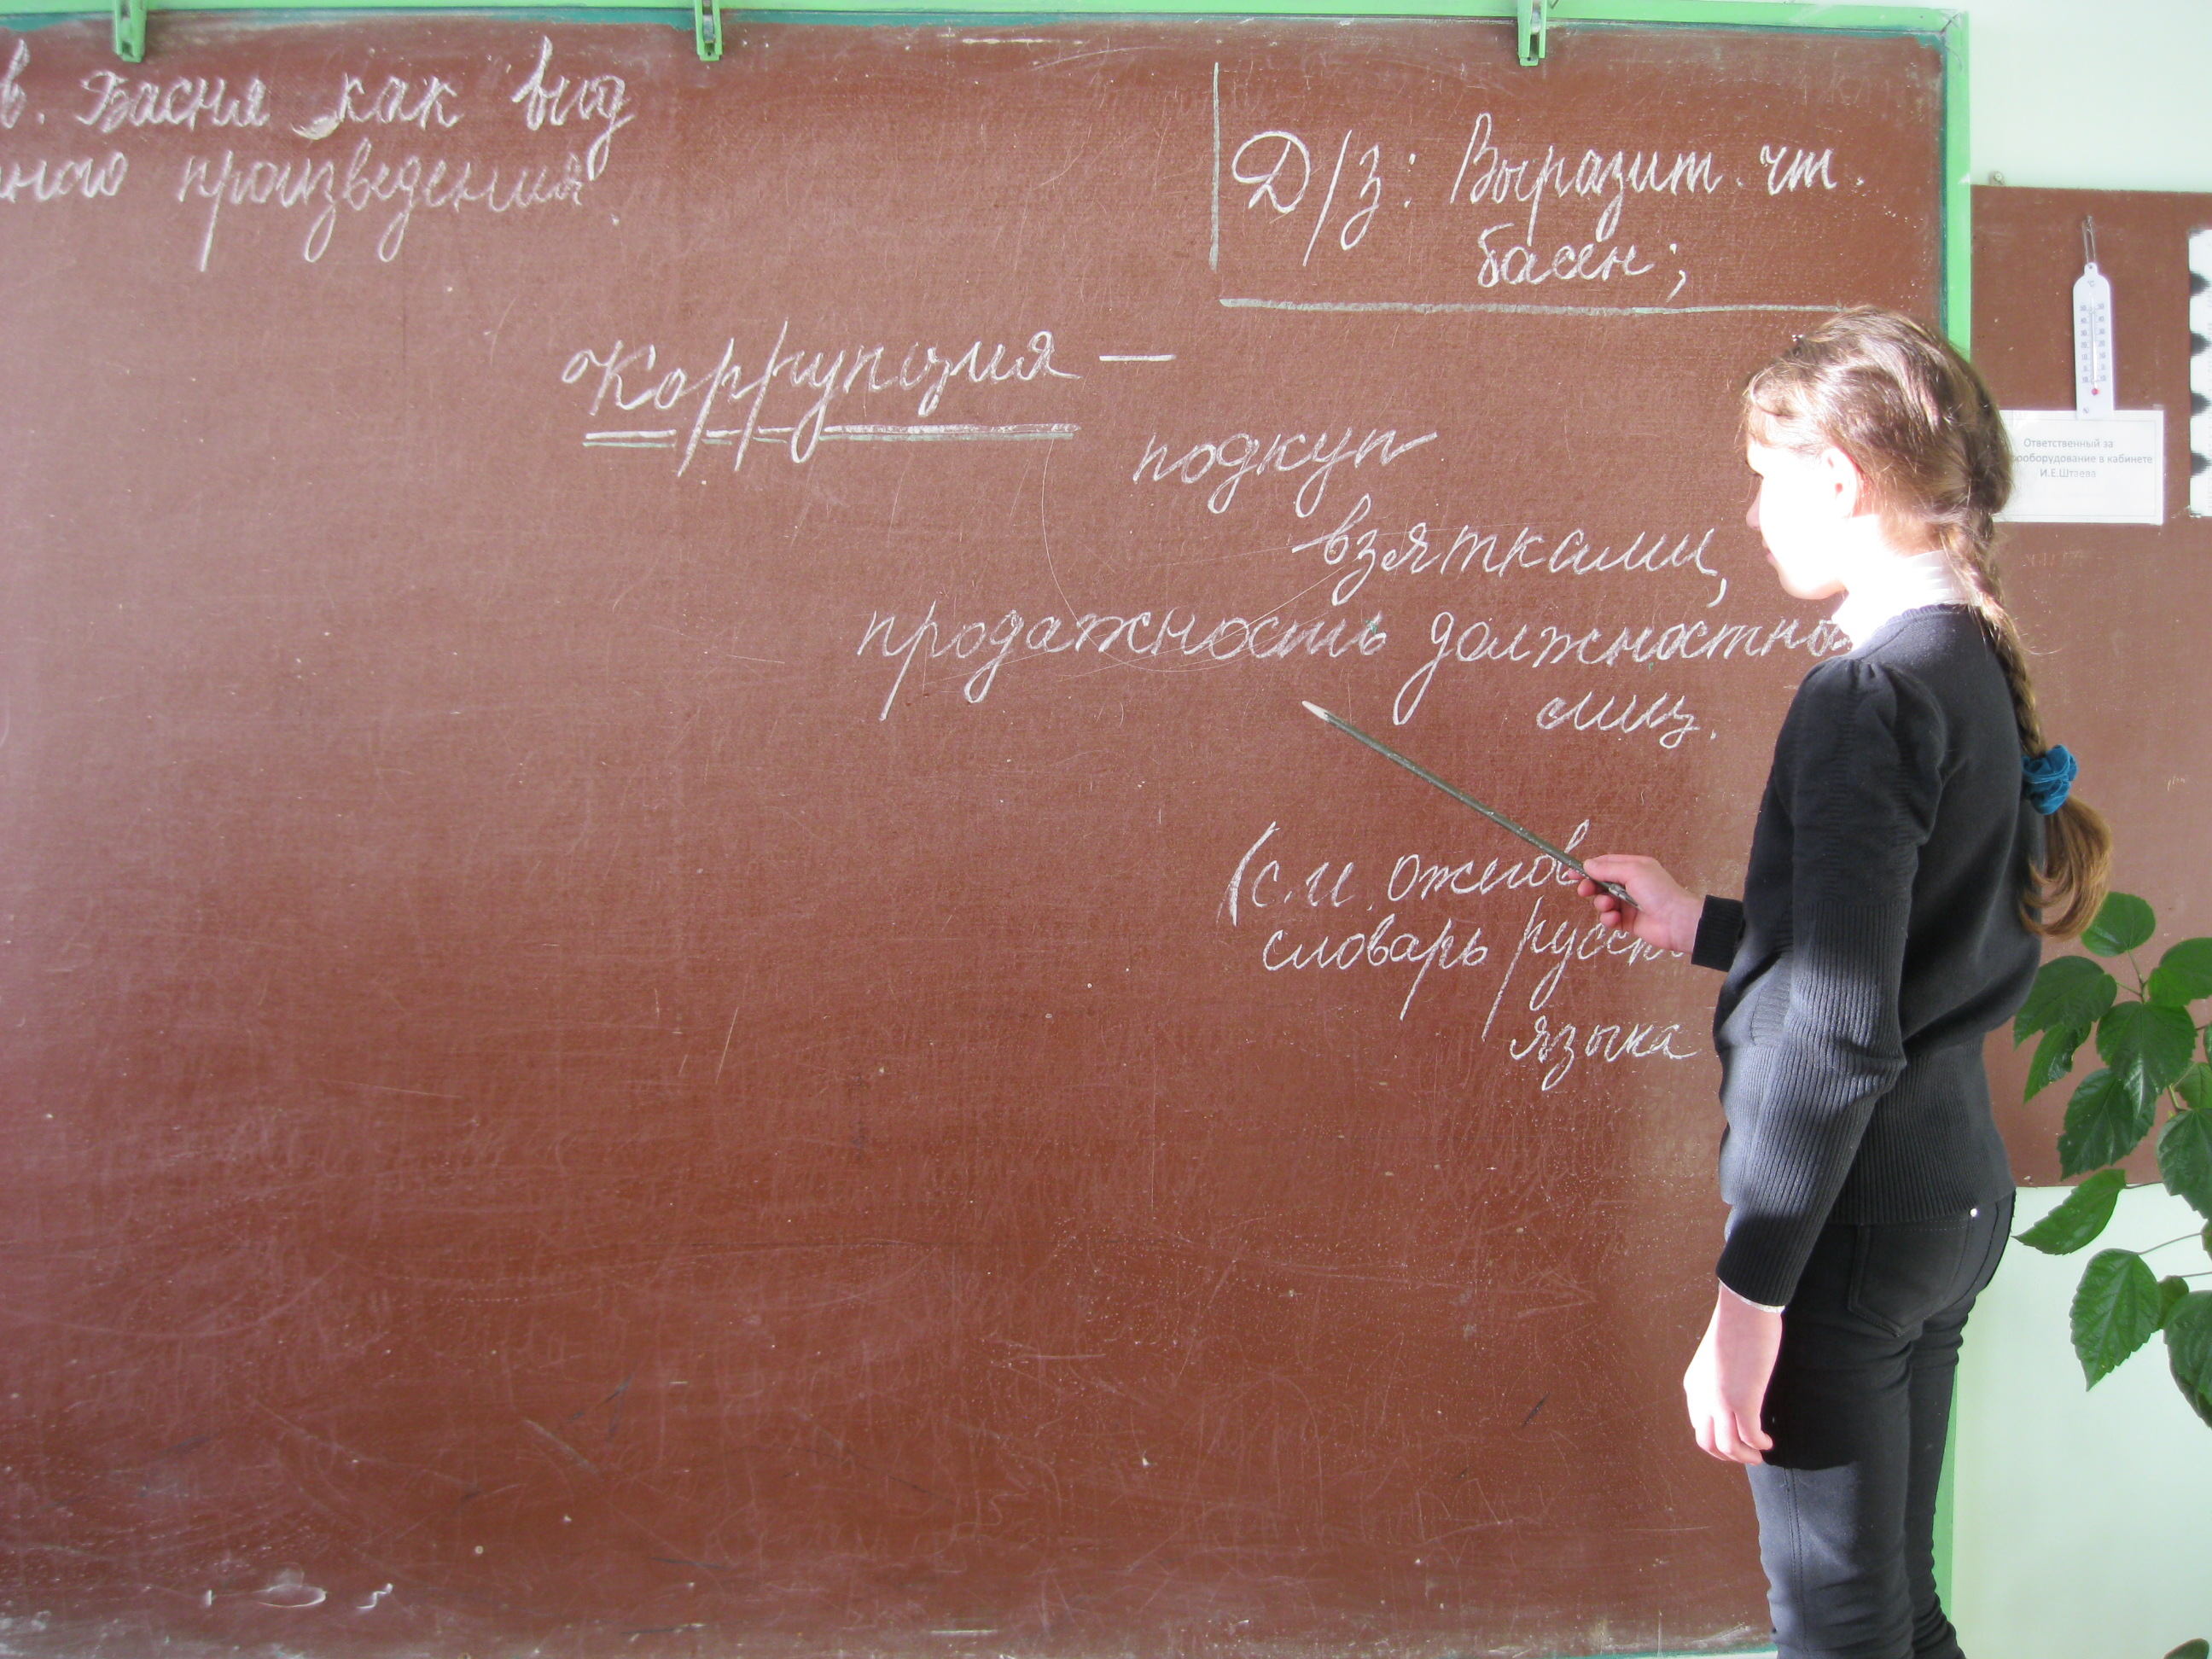 в. Басня как вид
ного произведения.
Д/З: Выразит. чт.
басен;
Коррупция —
подкуп
взятками,
продажность должностны
лиц.
(С.И. Ожегов
словарь русск
языка
Ответственный за
рооборудование в кабинете
И.Е.Штаева